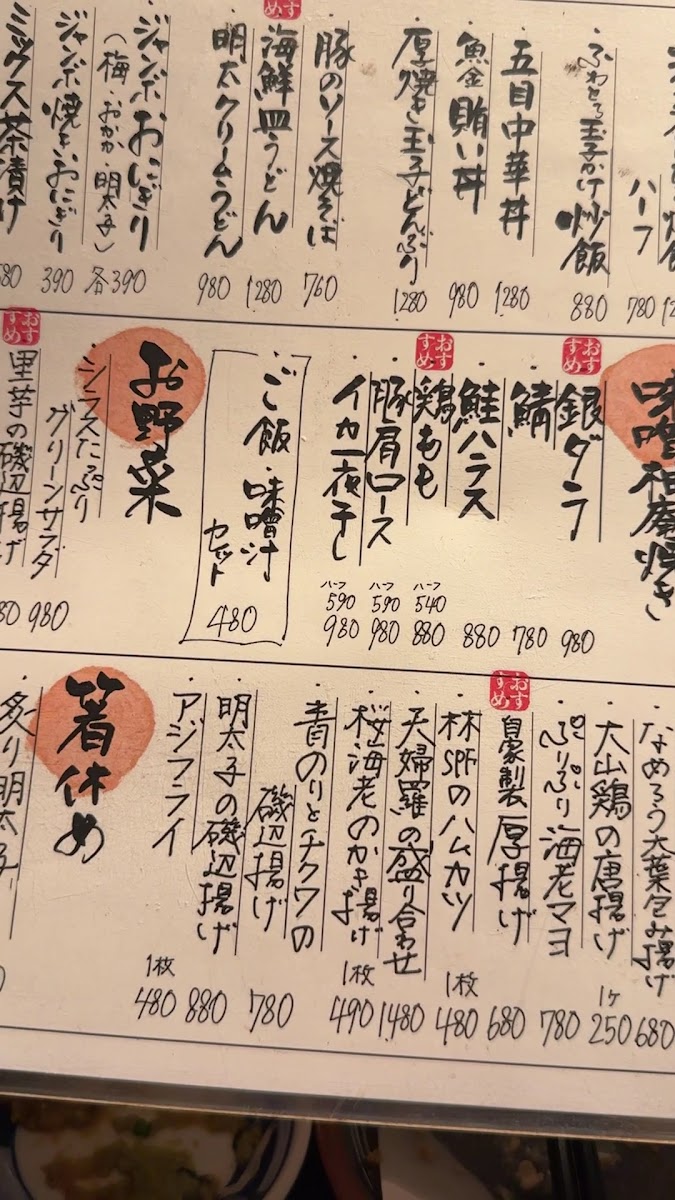 ハーフ
780
ふわとろ玉子かけ炒飯
880
五目中華丼
1280
魚金賄い丼
980
厚焼き玉子どんぶり
1280
豚のソース焼そば
760
おすすめ
海鮮皿うどん
1280
明太クリームうどん
980
ジャンボおにぎり
(梅・おかか・明太子)
各390
ジャンボ焼きおにぎり
390
ミックス茶漬け
味噌柏庵焼き
おすすめ
銀ダラ
980
鯖
780
鮭ハラス
880
おすすめ
鶏もも
ハーフ
540
880
豚肩ロース
ハーフ
590
980
イカ一夜干し
ハーフ
590
980
ご飯・味噌汁
セット
480
お野菜
シラスたっぷり
グリーンサラダ
980
おすすめ
里芋の磯辺揚げ
なめろう大葉包み揚げ
680
大山鶏の唐揚げ
1ヶ
250
ぷりぷり海老マヨ
780
おすすめ
自家製厚揚げ
680
林SPFのハムカツ
1枚
480
天婦羅の盛り合わせ
1480
桜海老のかき揚げ
1枚
490
青のりとチクワの
磯辺揚げ
780
明太子の磯辺揚げ
880
アジフライ
1枚
480
箸休め
炙り明太子